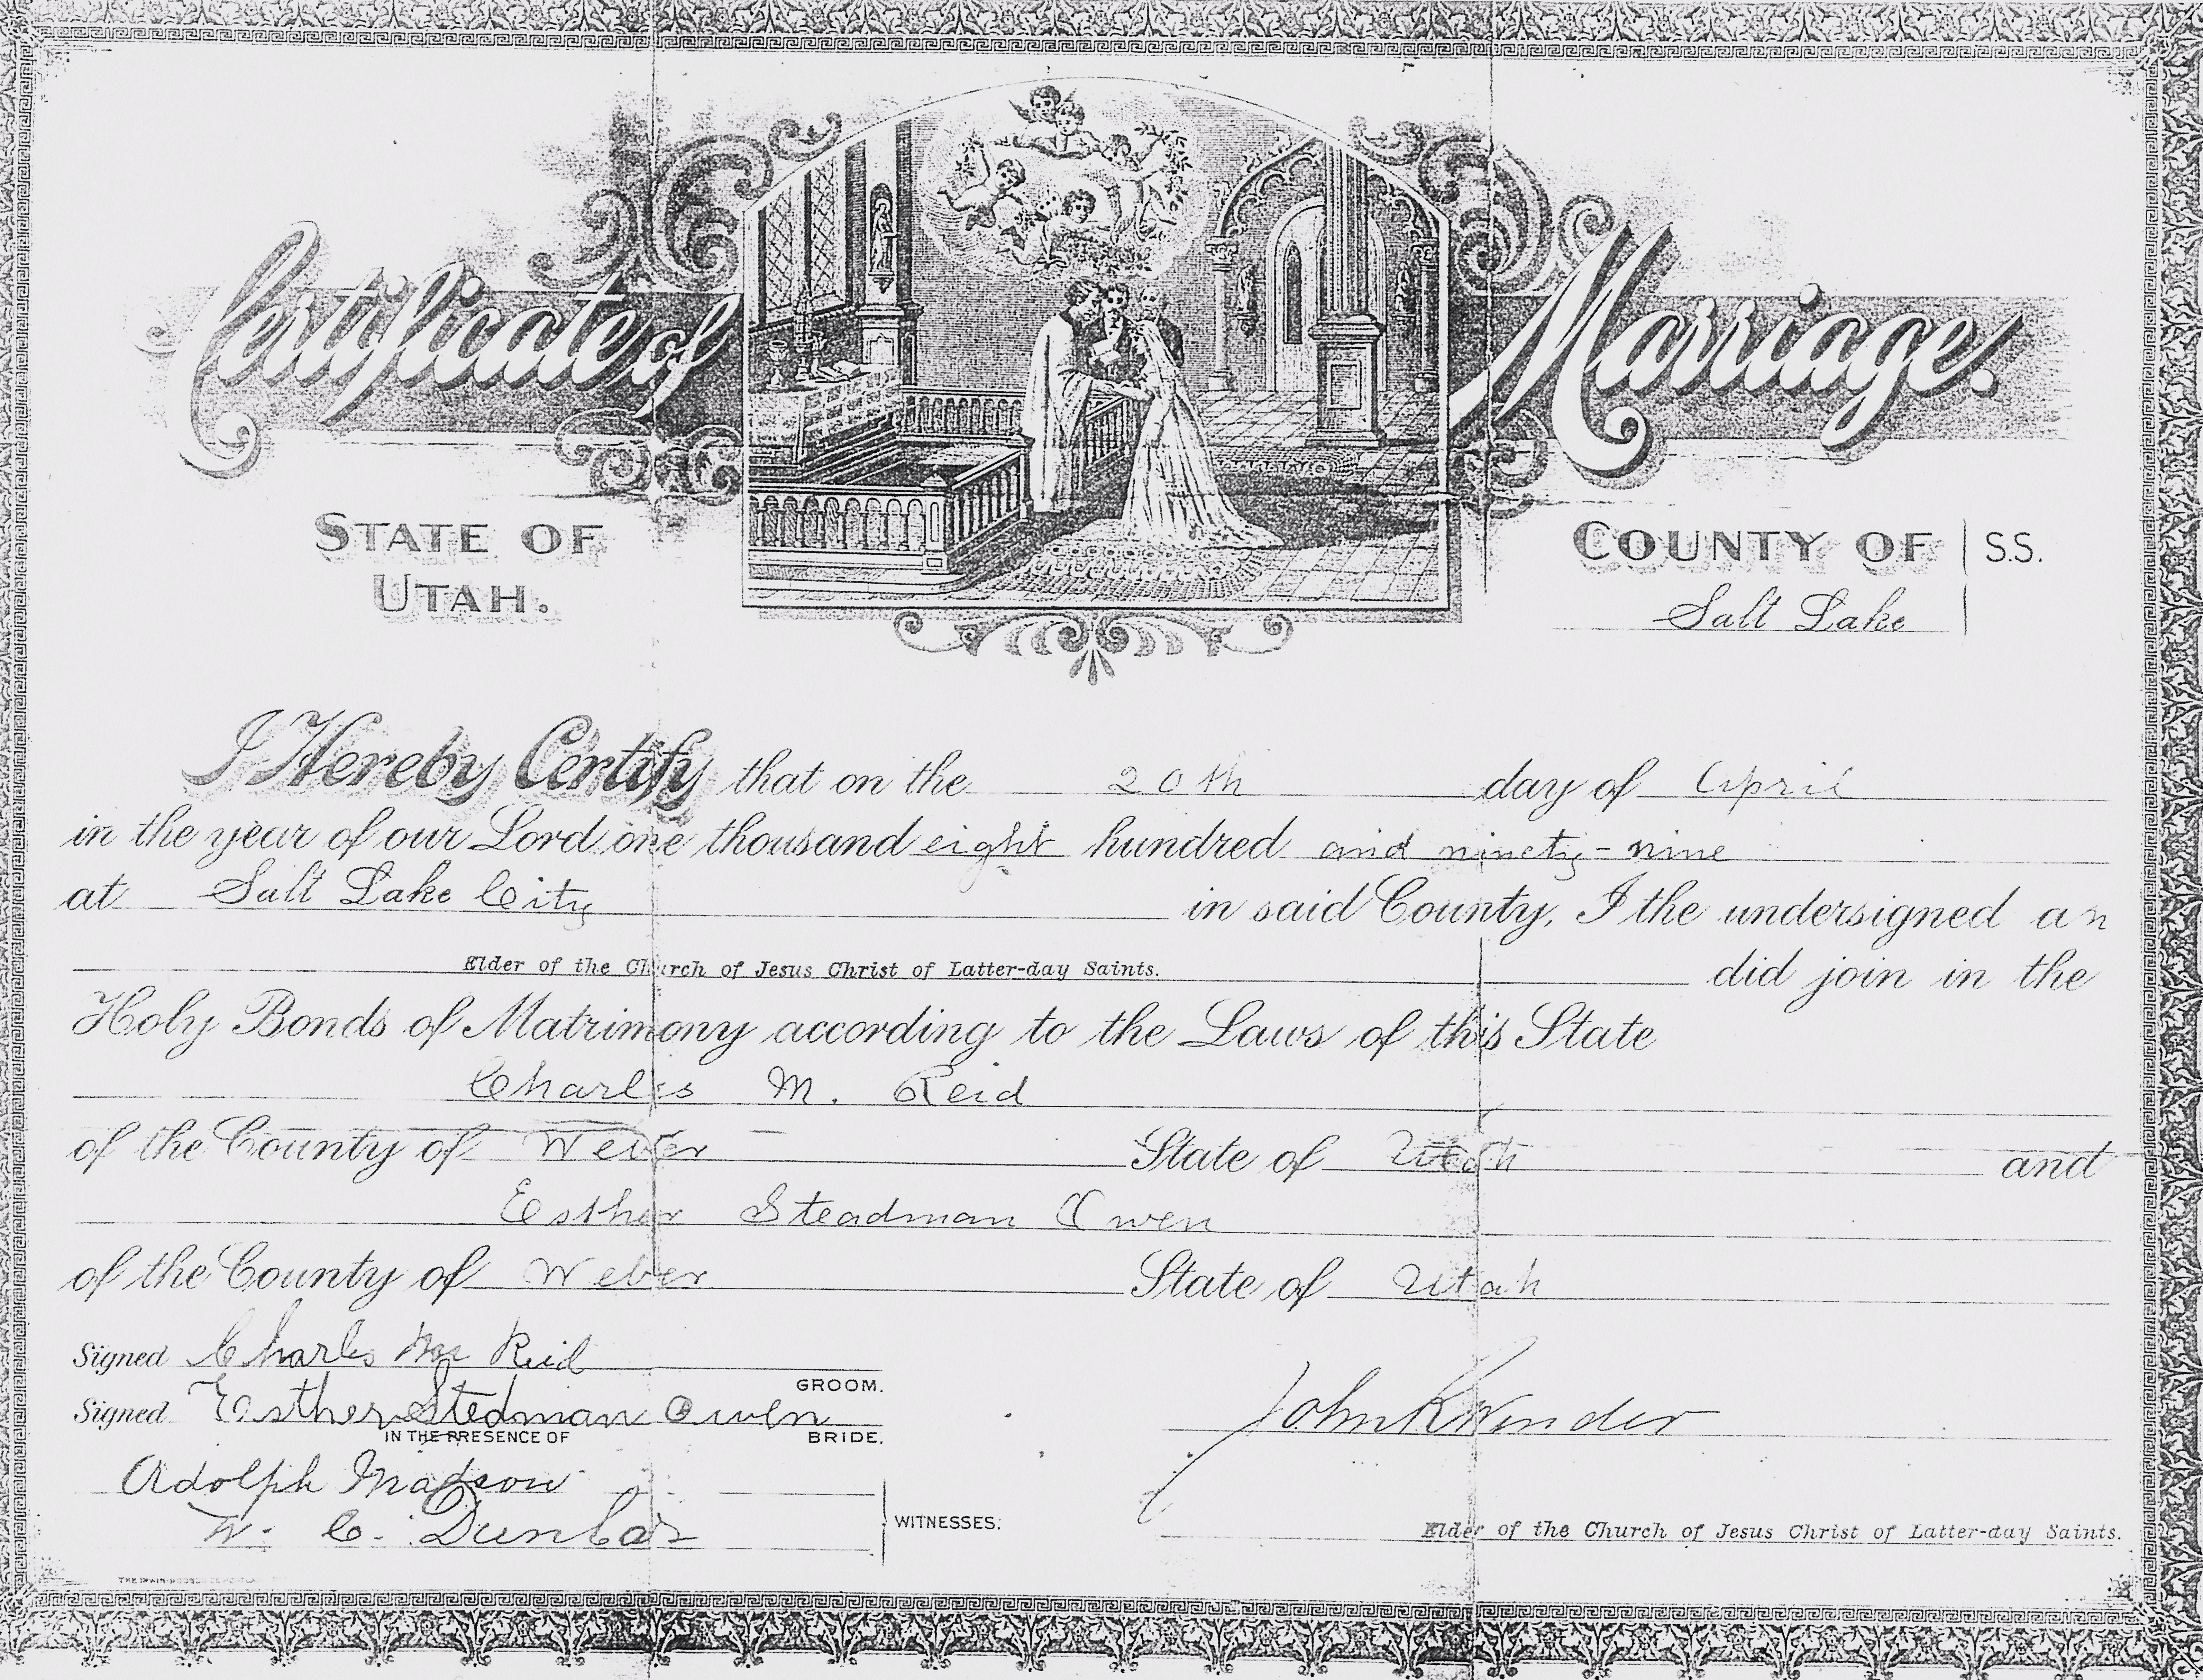 Certificate of Marriage.
STATE OF
UTAH.
COUNTY OF S.S.
Salt Lake
I Hereby Certify that on the 20th day of April
in the year of our Lord one thousand eight hundred and ninety-nine
at Salt Lake City in said County, I the undersigned an
Elder of the Church of Jesus Christ of Latter-day Saints. did join in the
Holy Bonds of Matrimony according to the Laws of this State
Charles M. Reid
of the County of Weber State of Utah and
Esther Steadman Owen
of the County of Weber State of Utah
Signed Charles Reid
GROOM.
Signed Esther Stedman Owen
IN THE PRESENCE OF BRIDE.
John R Winder
Adolph Madson
W. C. Dunbar
WITNESSES.
Elder of the Church of Jesus Christ of Latter-day Saints.